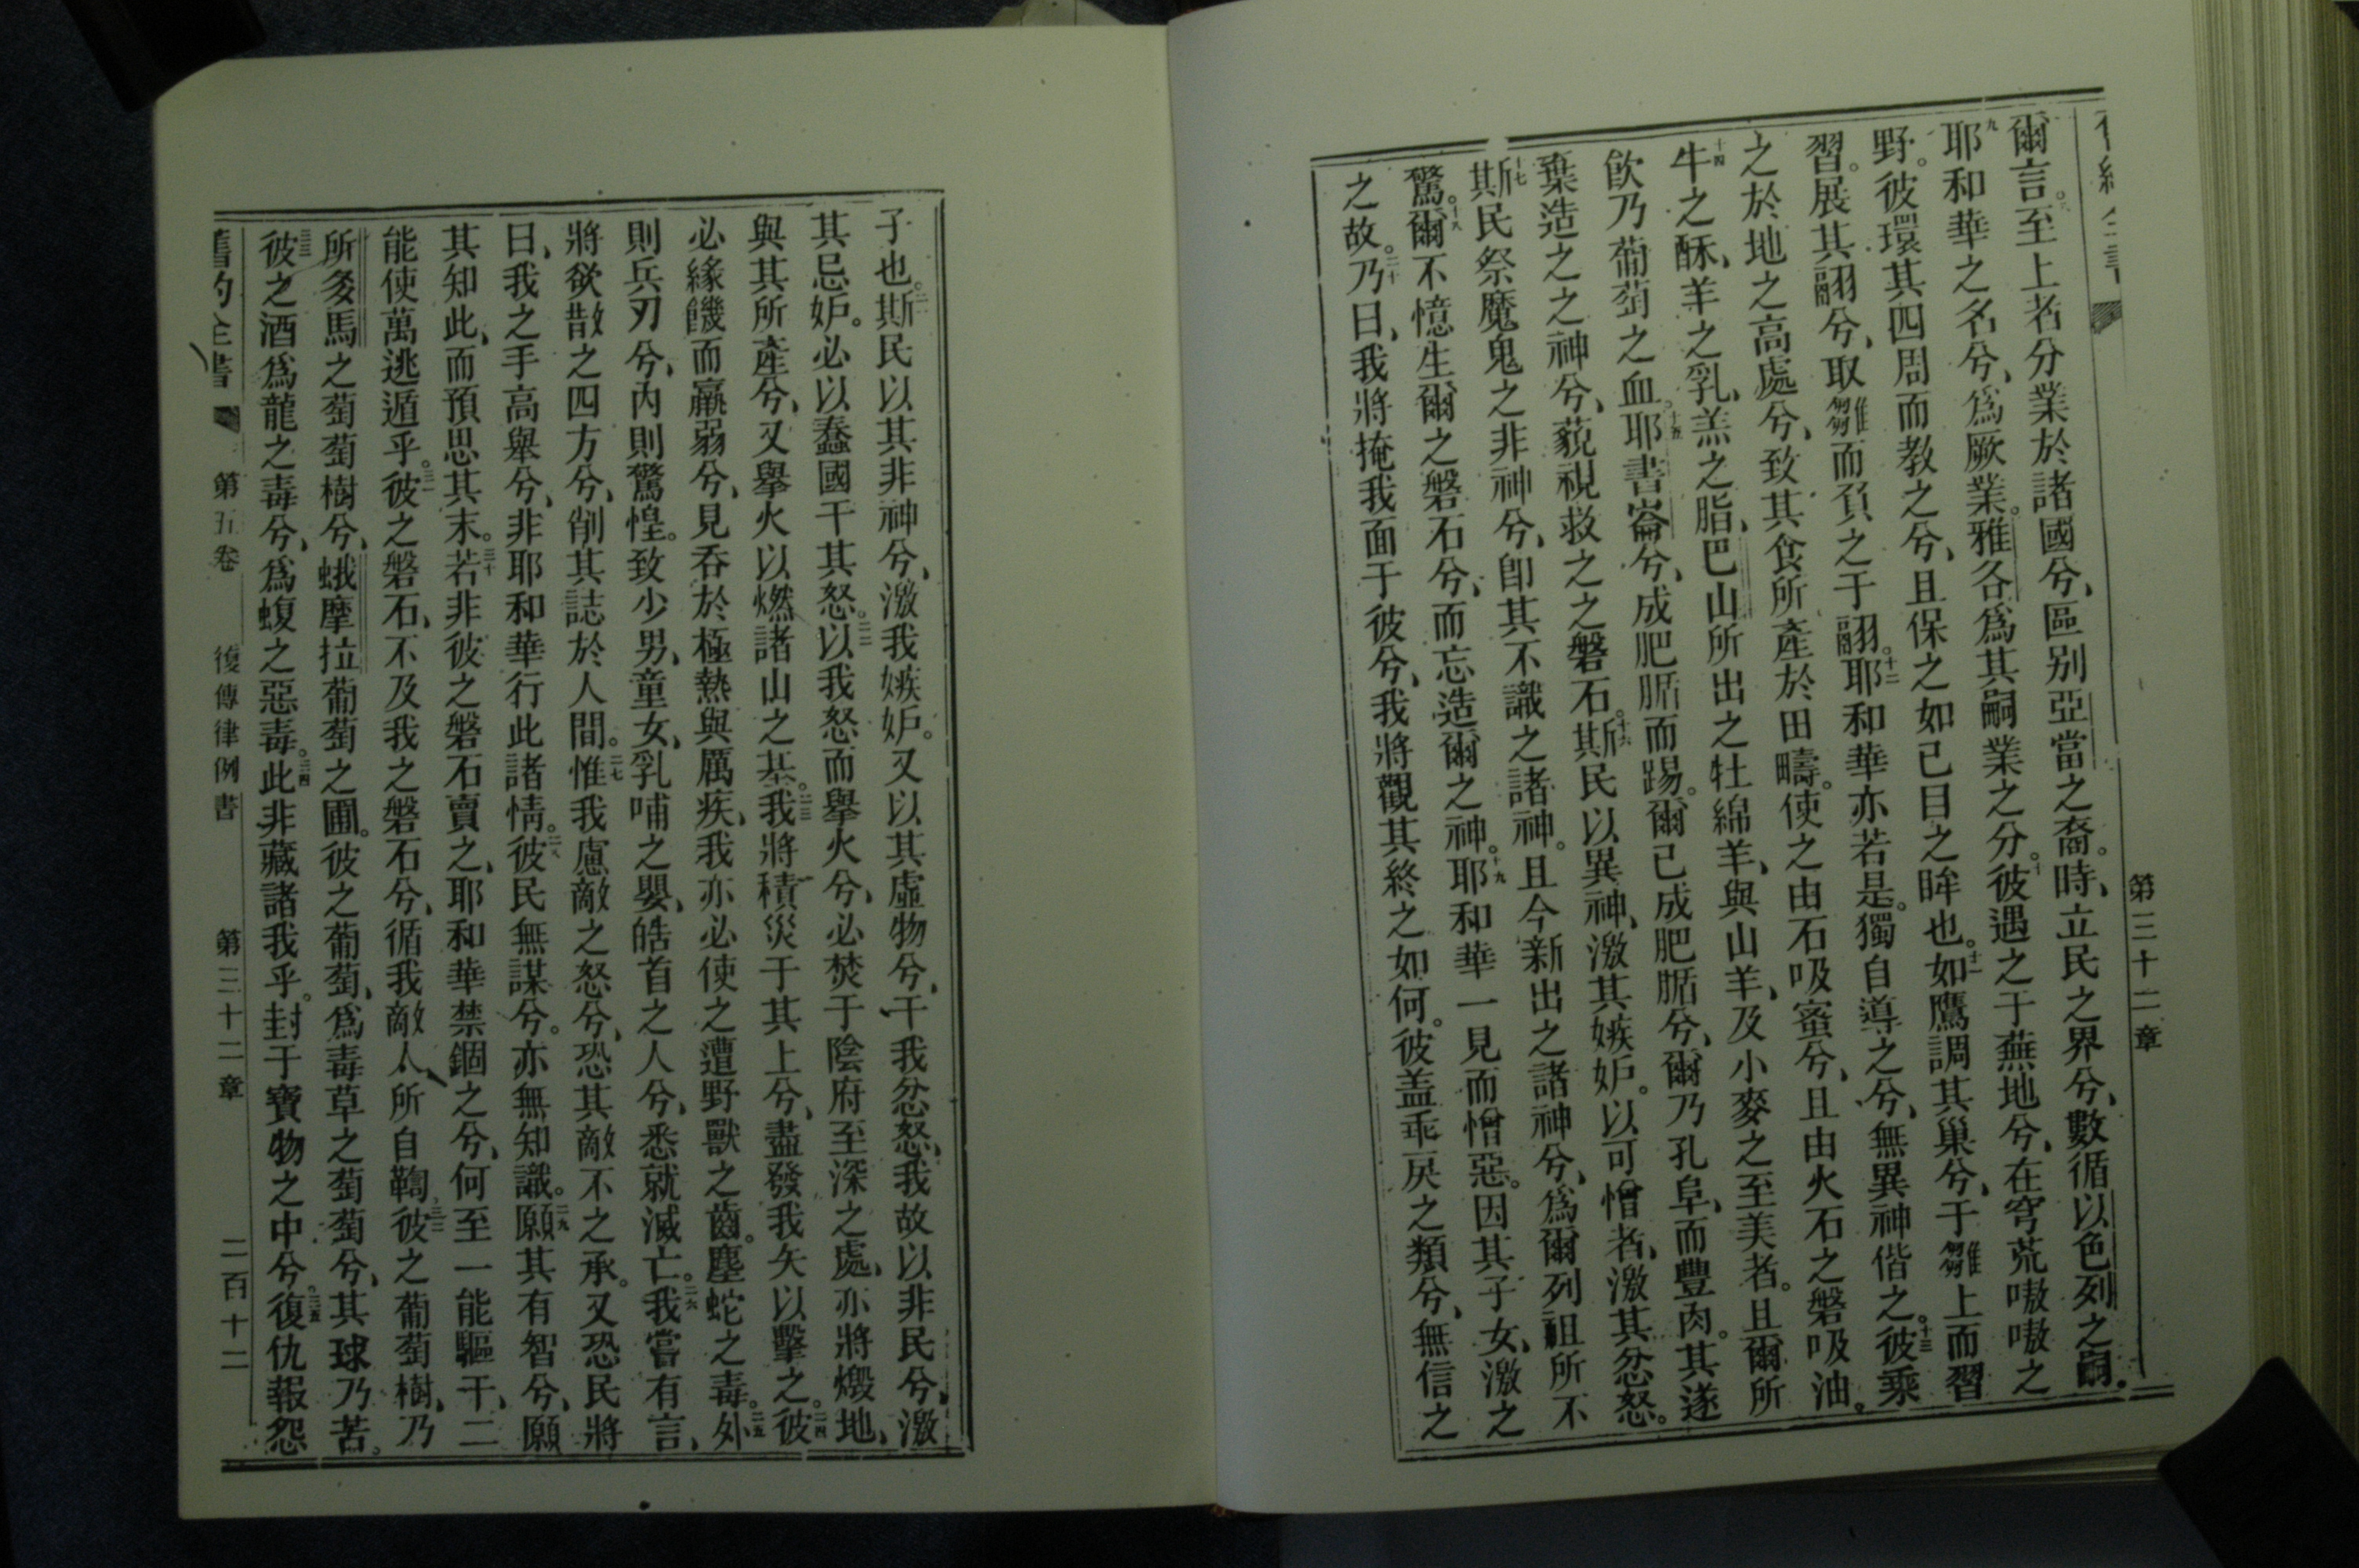 第三十二章
爾言。八至上者分業於諸國兮、區別亞當之裔。時、立民之界兮、數循以色列之嗣。
九耶和華之名兮、爲厥業。雅各爲其嗣業之分。十彼遇之于蕪地兮、在穹荒嗷嗷之
野。彼環其四周而教之兮、且保之如己目之眸也。十一如鷹調其巢兮、于雛上而習
習。展其翮兮、取雛而負之于翮。十二耶和華亦若是。獨自導之兮、無異神偕之。十三彼乘
之於地之高處兮、致其食所產於田疇。使之由石吸蜜兮、且由火石之磐吸油。
十四牛之酥、羊之乳、羔之脂、巴山所出之牡綿羊、與山羊、及小麥之至美者。且爾所
飲乃葡萄之血。十五耶書崙兮、成肥腯而踢。爾已成肥腯兮、爾乃孔阜、而豐肉。其遂
棄造之之神兮、藐視救之之磐石。十六斯民以異神、激其嫉妒。以可憎者、激其忿怒。
十七斯民祭魔鬼之非神兮、卽其不識之諸神。且今新出之諸神兮、爲爾列祖所不
驚。十八爾不憶生爾之磐石兮、而忘造爾之神。十九耶和華一見而憎惡。因其子女、激之
之故。二十乃曰、我將掩我面于彼兮、我將觀其終之如何。彼盖乖戾之類兮、無信之
子也。二一斯民以其非神兮、激我嫉妒。又以其虛物兮、干我忿怒、我故以非民兮、激
其忌妒。必以蠢國干其怒。二二以我怒而舉火兮、必焚于陰府至深之處、亦將燬地、
與其所產兮、又舉火以燃諸山之基。二三我將積災于其上兮、盡發我矢以擊之。二四彼
必緣饑而羸弱兮、見吞於極熱與厲疾、我亦必使之遭野獸之齒。塵蛇之毒。二五外
則兵刃兮、內則驚惶。致少男、童女、乳哺之嬰、皓首之人兮、悉就滅亡。二六我嘗有言、
將欲散之四方兮、削其誌於人間。二七惟我慮敵之怒兮、恐其敵不之承。又恐民將
曰、我之手高舉兮、非耶和華行此諸情。二八彼民無謀兮。亦無知識。二九願其有智兮、願
其知此、而預思其末。三十若非彼之磐石賣之、耶和華禁錮之兮、何至一能驅千、二
能使萬逃遁乎。三一彼之磐石、不及我之磐石兮、循我敵人所自鞫。三二彼之葡萄樹、乃
所多馬之萄萄樹兮、蛾摩拉葡萄之圃。彼之葡萄、爲毒草之萄萄兮、其球乃苦。
三三彼之酒爲龍之毒兮、爲蝮之惡毒。三四此非藏諸我乎。封于寶物之中兮。三五復仇報怨
舊約全書 第五卷 復傳律例書 第三十二章 二百十二